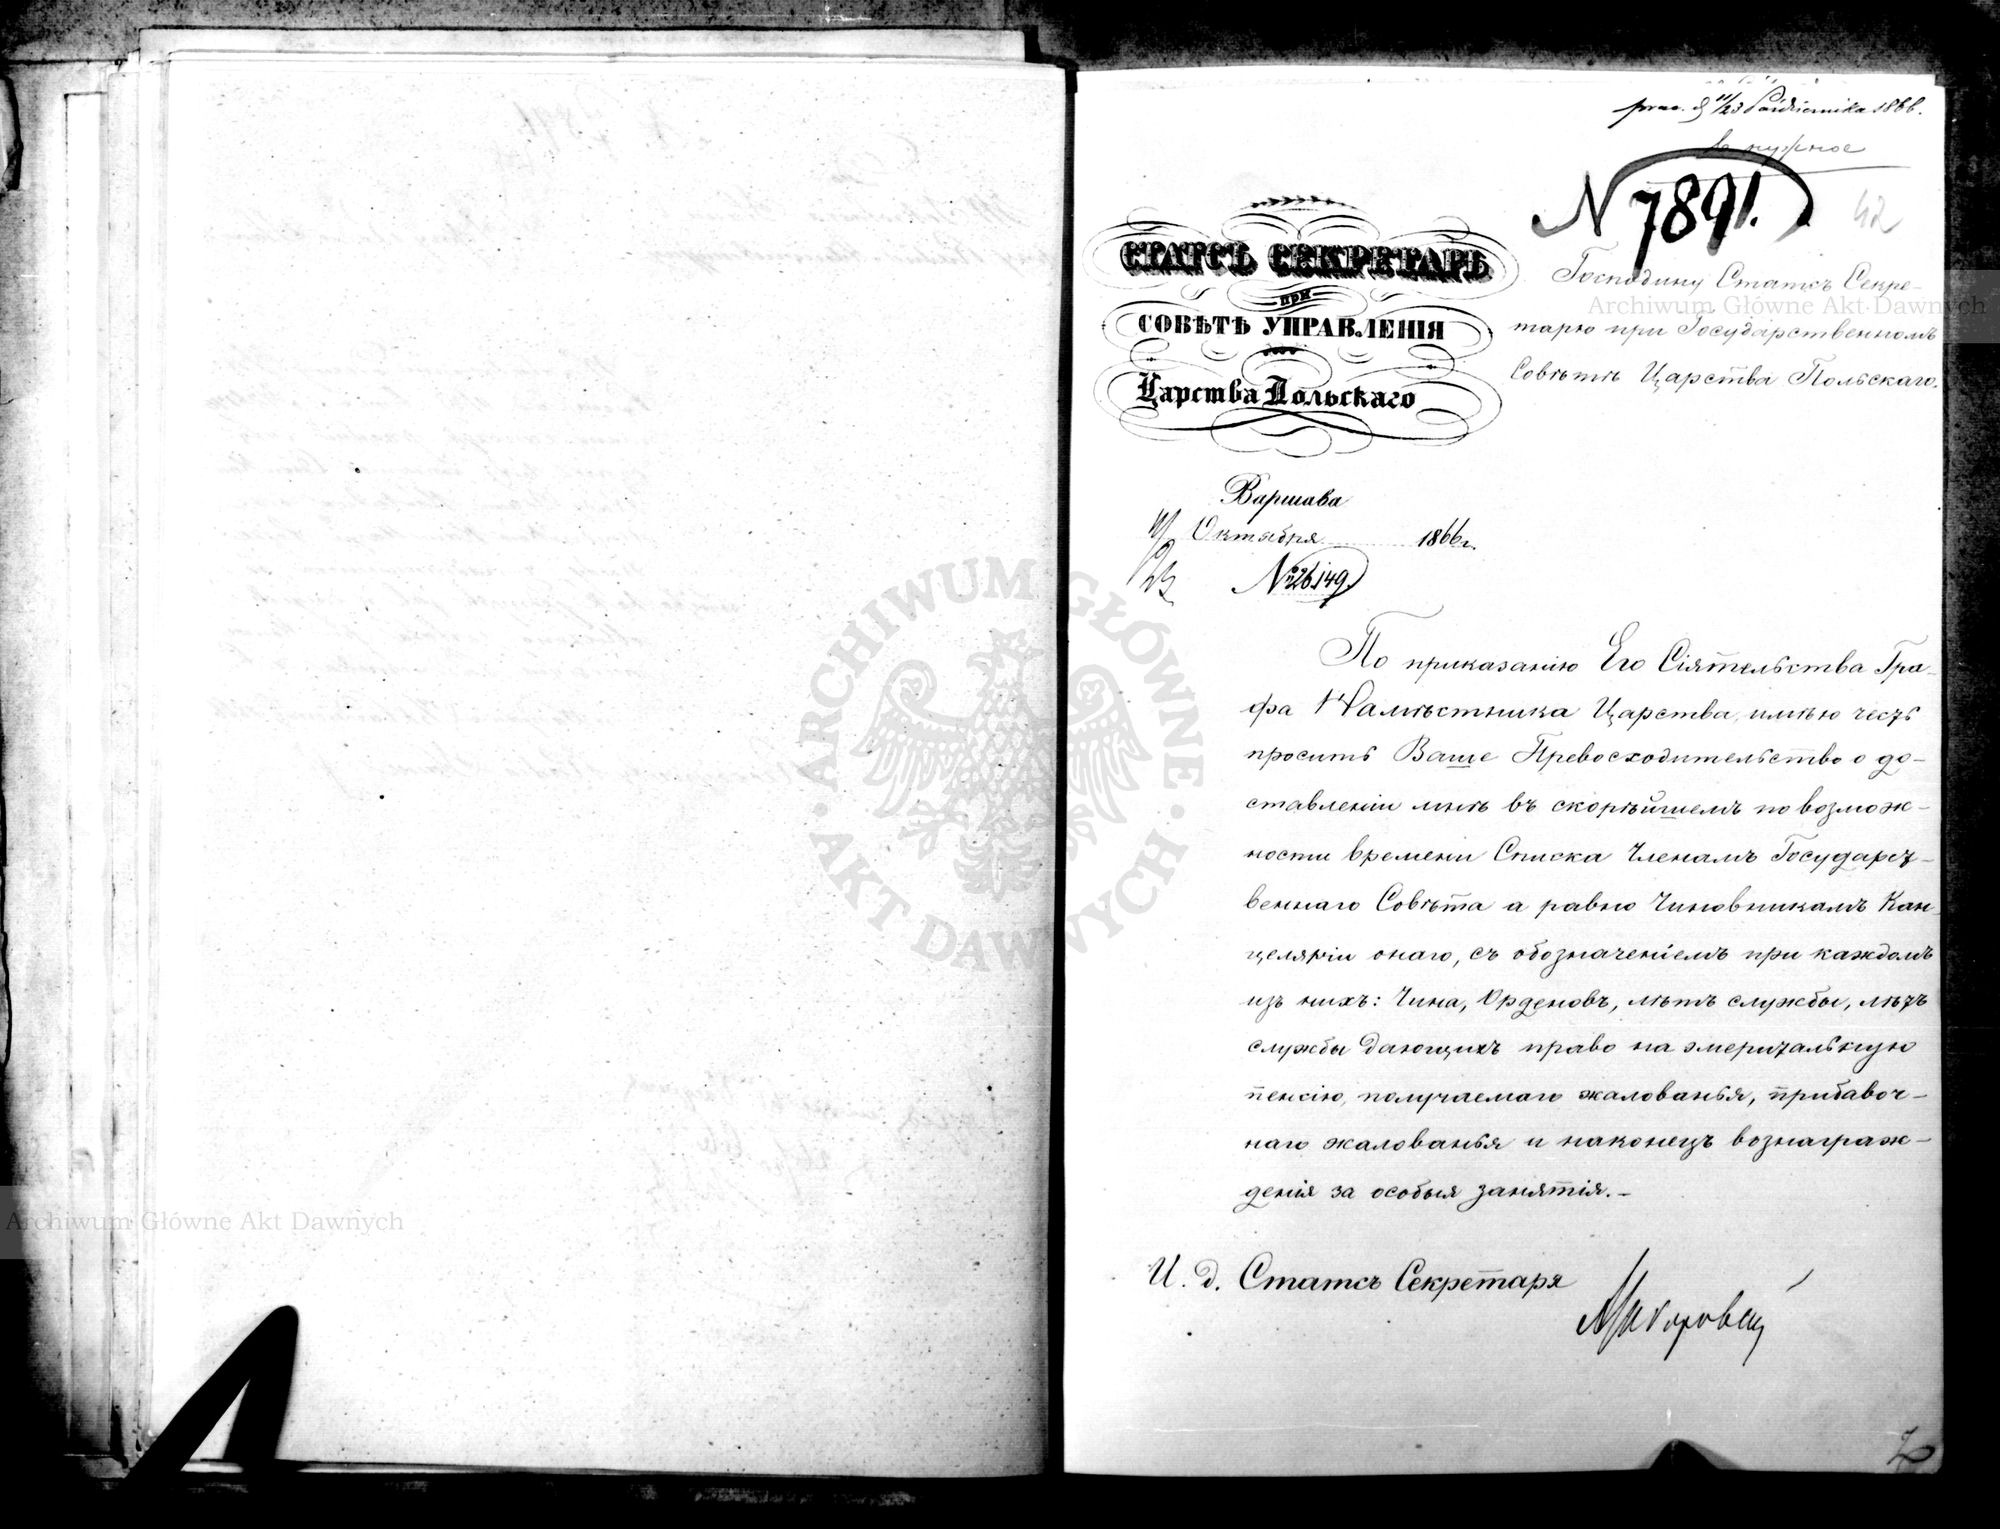 prae. d 11/23 Października 1866.
в нужное
N 7891.
42
СТАТСЪ СЕКРЕТАРЬ
при
СОВѢТѢ УПРАВЛЕНІЯ
Царства Польскаго
Господину Статсъ Секре-
тарю при Государственномъ
Совѣтѣ Царства Польскаго.
Варшава
11/23 Октября 1866 г.
№ 26.149
По приказанію Его Сіятельства Гра-
фа Намѣстника Царства, имѣю честь
просить Ваше Превосходительство о до-
ставленіи мнѣ въ скорѣйшемъ по возмож-
ности времени Списка Членамъ Государст-
веннаго Совѣта а равно Чиновникамъ Кан-
целяріи онаго, съ обозначеніемъ при каждомъ
изъ нихъ: Чина, Орденовъ, лѣтъ службы, лѣтъ
службы дающихъ право на эмеритальную
пенсію, получаемаго жалованья, прибавоч-
наго жалованья и наконецъ вознаграж-
денія за особыя занятія.-
И. д. Статсъ Секретаря
Archiwum Główne Akt Dawnych
Archiwum Główne Akt Dawnych
ARCHIWUM GŁÓWNE · AKT DAWNYCH ·